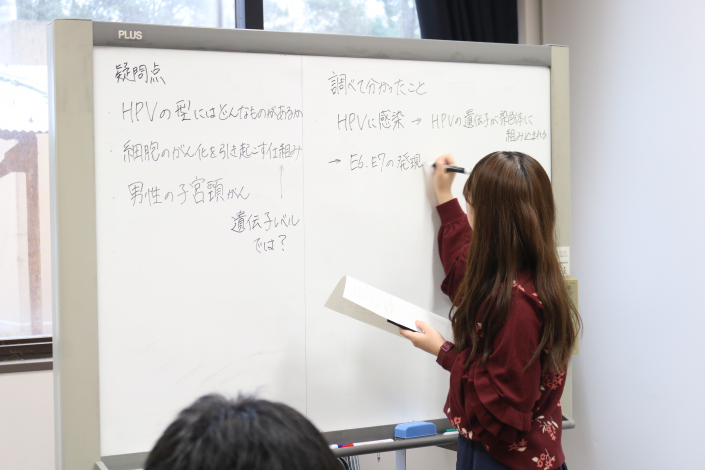 PLUS
疑問点
HPVの型にはどんなものがあるか
細胞のがん化を引き起こす仕組み
男性の子宮頸がん
遺伝子レベル
では?
調べて分かったこと
HPVに感染 → HPVの遺伝子が染色体に
組み込まれる
→ E6、E7の発現